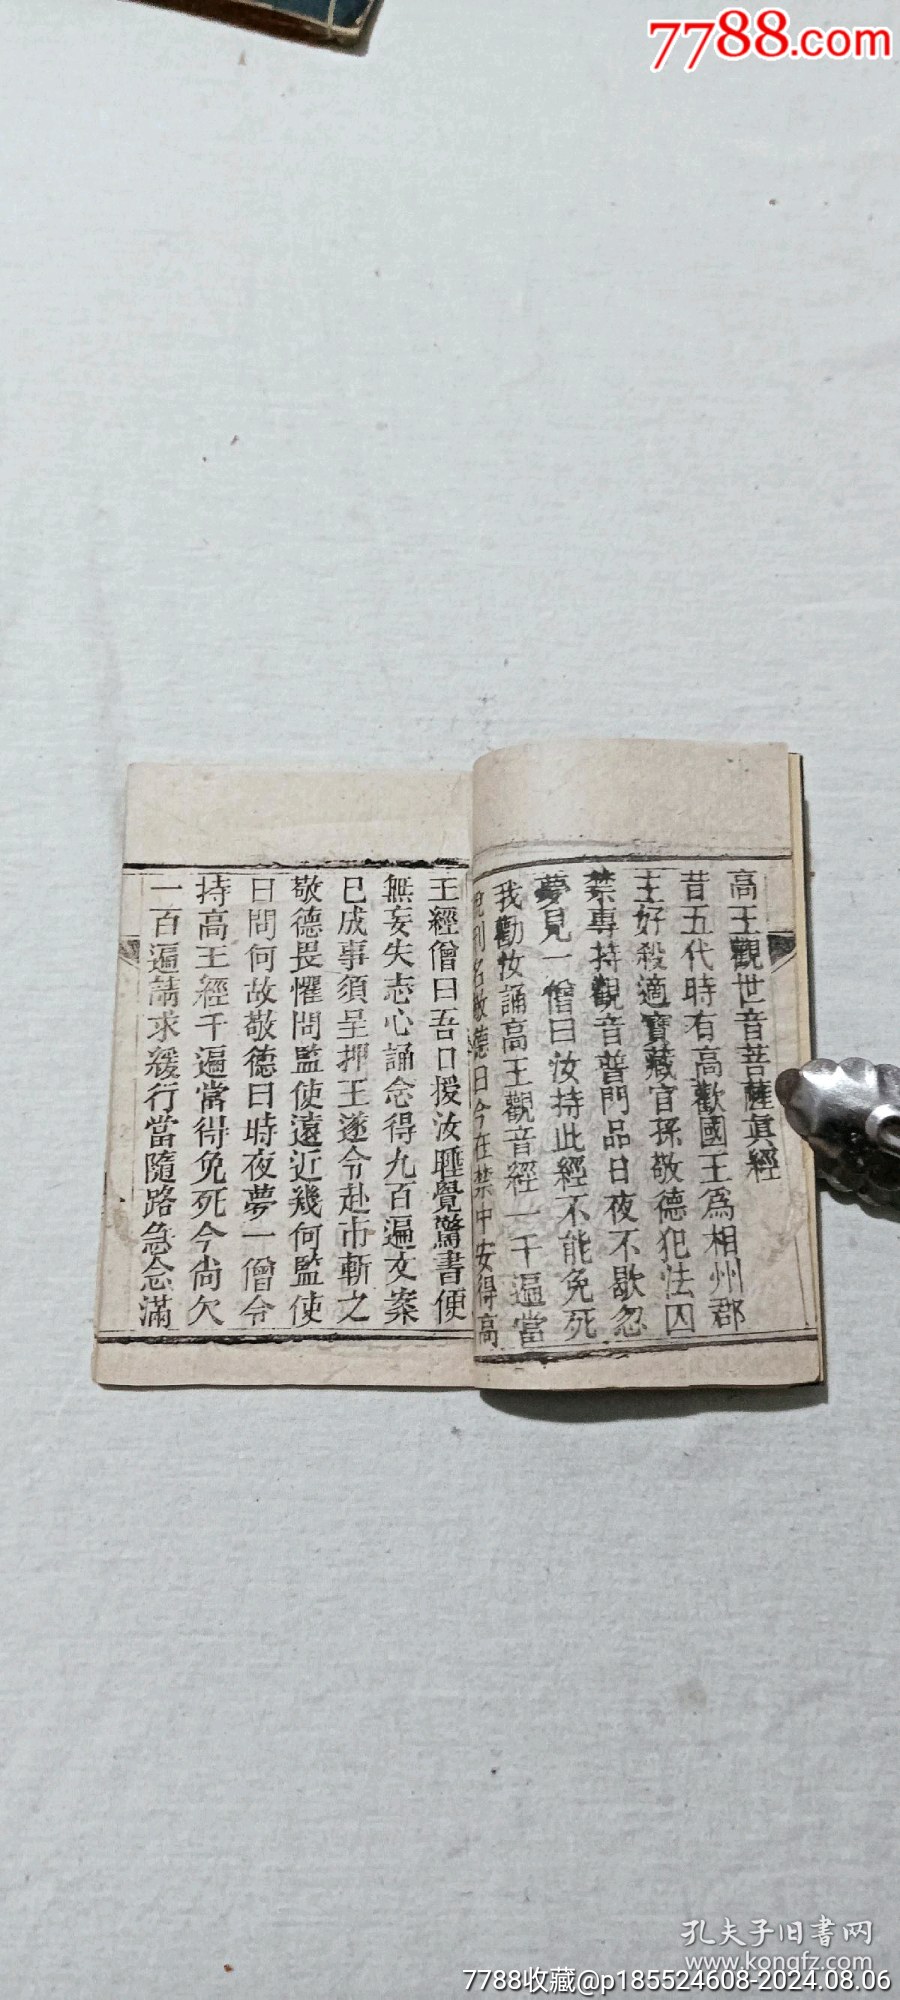 7788.com
高王觀世音菩薩真經
昔五代時有高歡國王為相州郡
王好殺適寶藏官孫敬德犯法囚
禁專持觀音普門品日夜不歇忽
夢見一僧曰汝持此經不能免死
我勸汝誦高王觀音經一千遍當
刑名敬德曰今在禁中安得高
王經僧曰吾口授汝睡覺驚書便
無妄失志心誦念得九百遍文案
已成事須呈押王遂令赴市斬之
敬德畏懼問監使遠近幾何監使
曰問何故敬德曰時夜夢一僧令
持高王經千遍當得免死今尚欠
一百遍請求緩行當隨路急念滿
孔夫子旧書网
www.kongfz.com
7788收藏@p185524608-2024.08.06